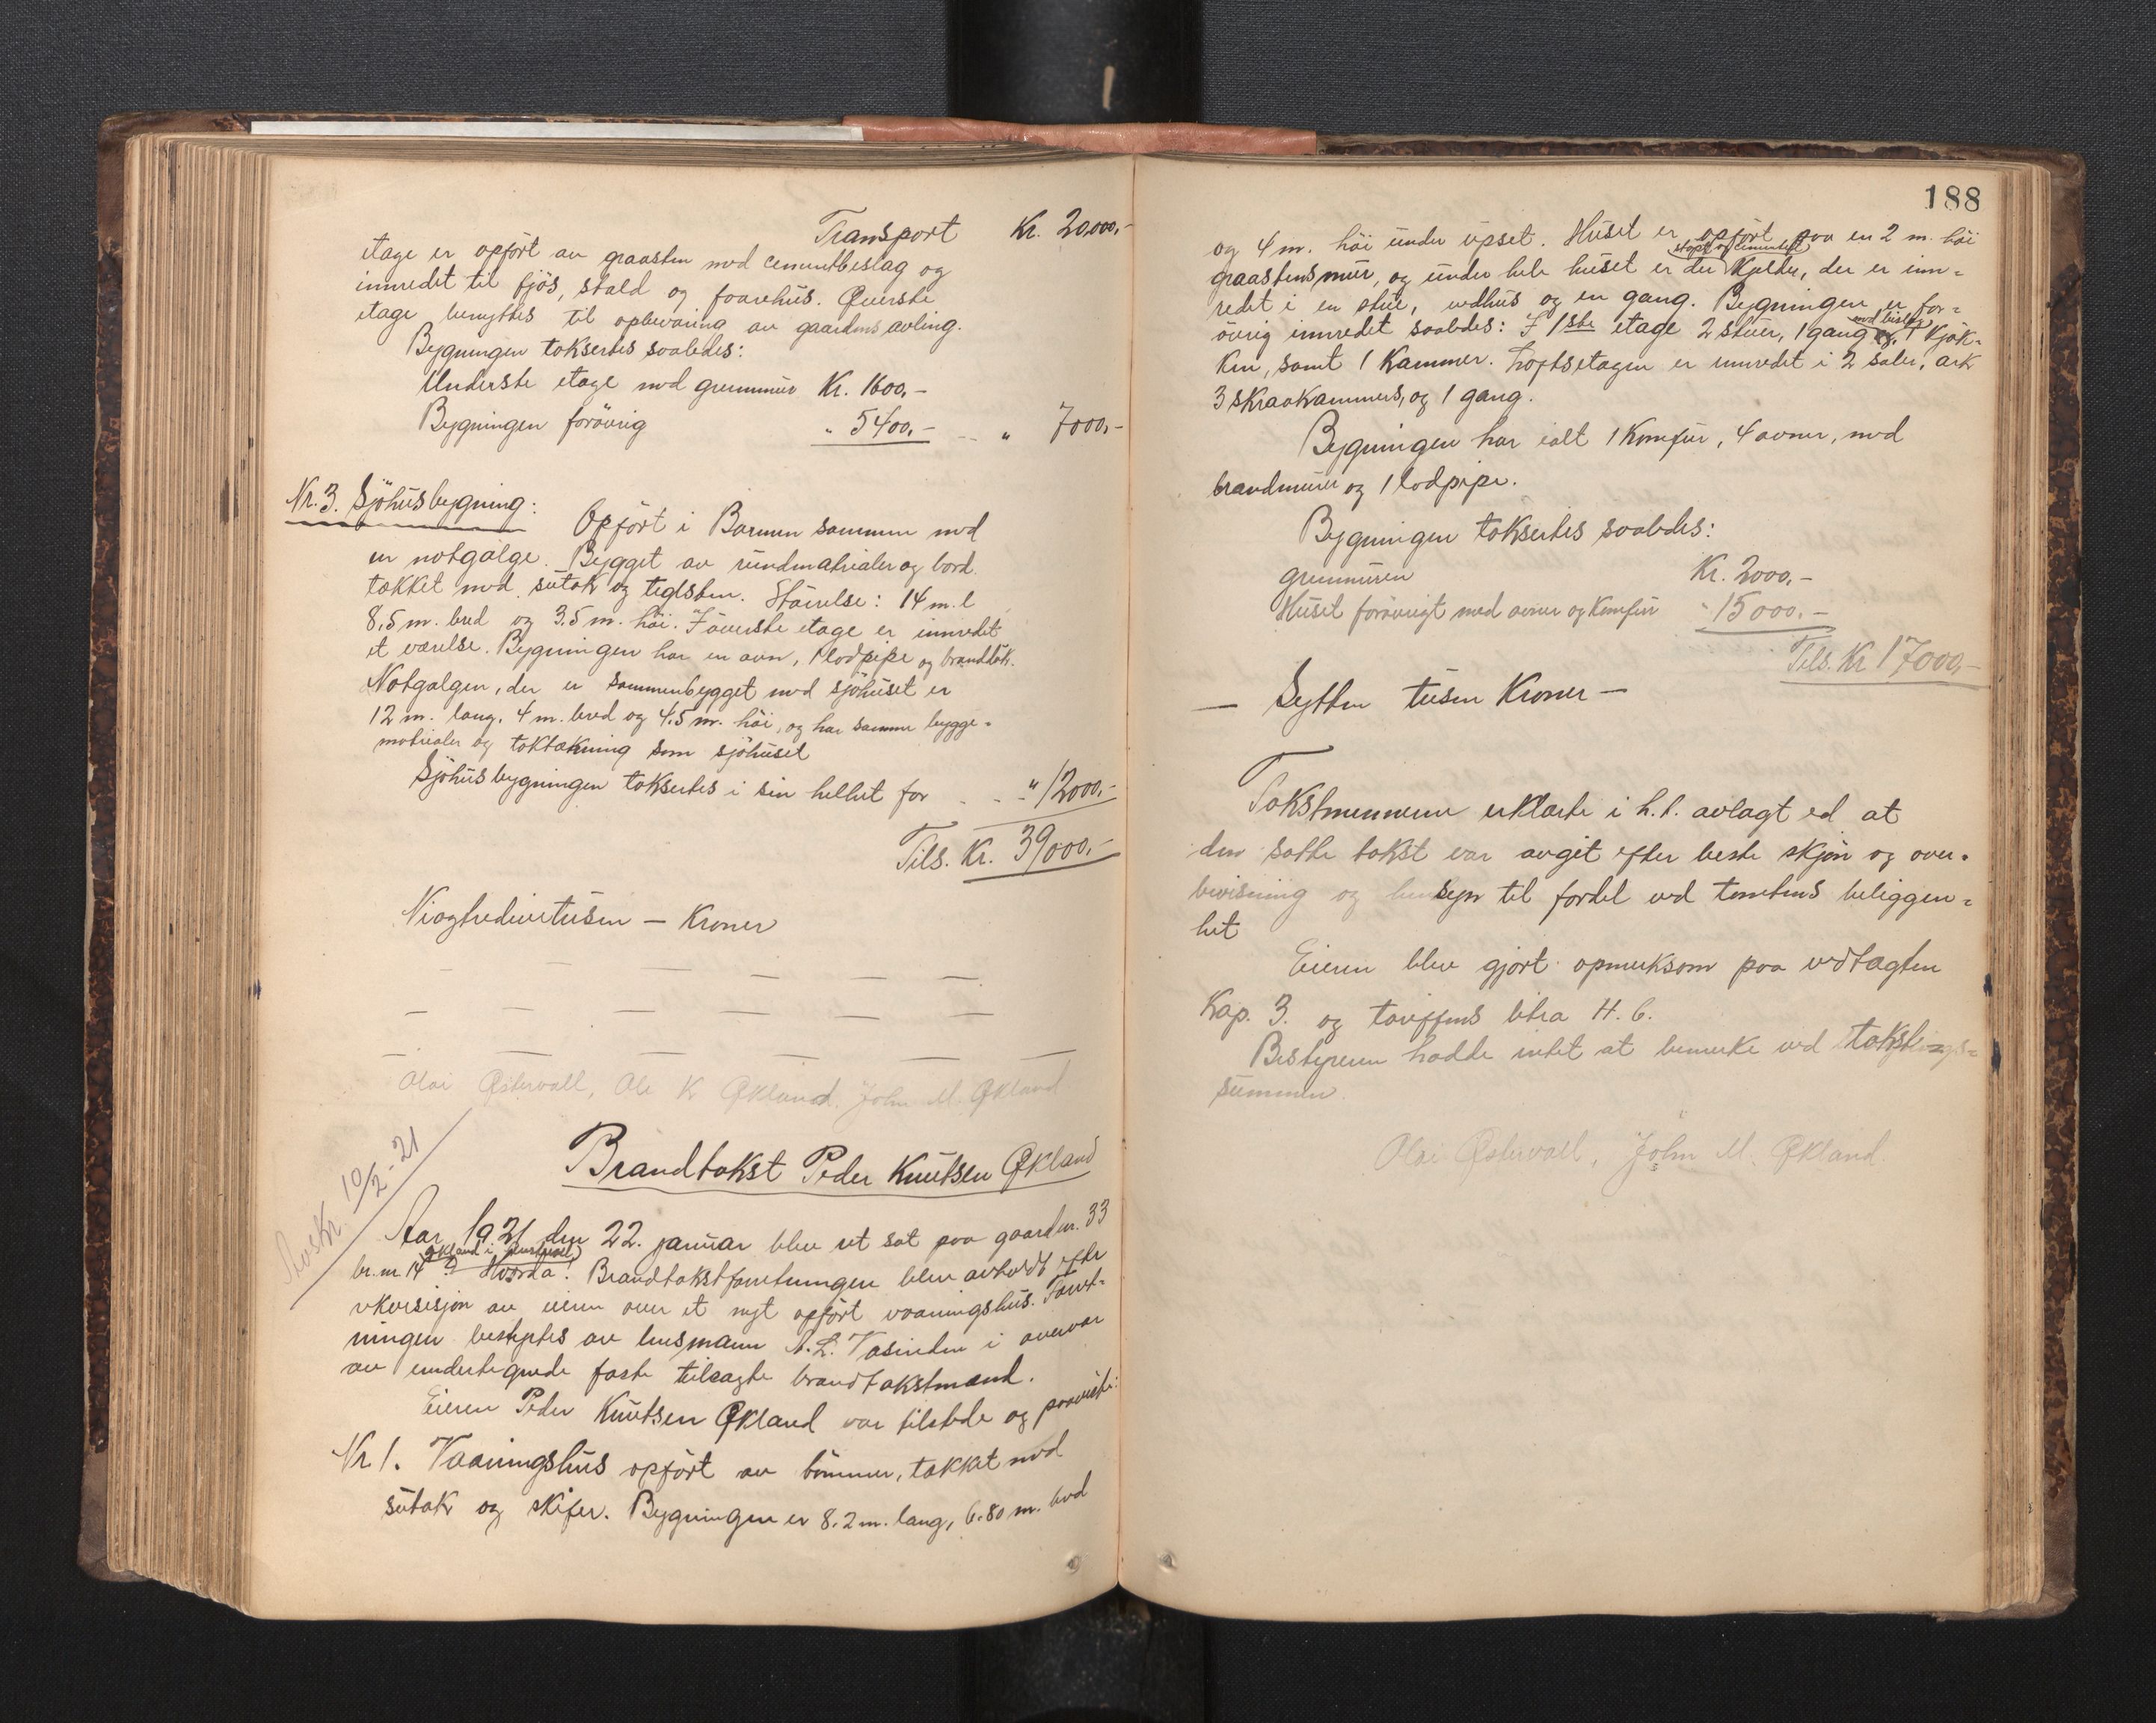 Transport Kr. 20000,-
etage er opført av graasten med cementbeslag og
innredet til fjös, stald og faarehus. Øverste
etage benyttes til opbevaring av gaardens avling.
Bygningen taksertes saaledes:
Underste etage med grunmur Kr. 1600,-
Bygningen forövrig " 5400,- - - " 7000,-
Nr. 3. Sjöhusbygning:
Opfört i Barmen sammen med
en notgalge. Bygget av rundmatrialer og bord.
takket med sutak og teglsten. Störrelse: 14 m. l
8,5 m. bred og 3.5 m. höi. I överste etage er innredet
et værelse. Bygningen har en avn, 1 lodpipe og brandtak.
Notgalgen, der er sammenbygget med sjöhuset er
12 m. lang, 4 m. bred og 4.5 m. höi, og har samme bygge=
matrialer og taktækning som sjöhuset
Sjöhusbygningen taksertes i sin helhet for - - - " 12000,-
Tils. Kr. 39000,-
Niogtredivetusen — Kroner
Olai Østervoll, Ole K Økland. John M. Økland
Avskr. 10/2-21
Brandtakst Peder Knutsen Økland
Aar 1921 den 22. januar blev ret sat paa gaardnr. 33
Økland i Austevoll
br. nr 14 Hvorda! Brandtakstforretningen blev avholdt efter
rekvisisjon av eieren over et nyt opfört vaaningshus. Forret-
ningen bestyrtes av lensmann A. L. Vasinden i overvær
av undertegnede faste tilsagte brandtakstmænd.
Eieren Peder Knutsen Økland var tilstede og paaviste:
Nr 1. Vaaningshus opfört av tömmer, takket med
sutak og skifer. Bygningen er 8.2 m. lang, 6.80 m. bred
188
og 4 m. höi under upset. Huset er opfört paa en 2 m. höi
stöpt og cementert
graastensmur, og under hele huset er der Kjelder, der er inn=
redet i en stue, vedhus og en gang. Bygningen er for=
med bislag,
övrig innredet saaledes: I 1ste etage 2 stuer, 1 gang og 1 Kjök-
Ken, samt 1 Kammer. Loftsetagen er innredet i 2 saler, ark
3 skraakammers, og 1 gang.
Bygningen har ialt 1 Komfur, 4 avner, med
brandmurer og 1 lodpipe.
Bygningen taksertes saaledes:
grunmuren Kr. 2000,-
Huset forövrigt med avner og Komfur " 15000.-
Tils. Kr 17000,-
— Sytten tusen Kroner —
Takstmennene erklærte i h. t. avlagt ed at
den satte takst var avgit efter beste skjön og over=
bevisning og hensyn til fordel ved tomtens beliggen=
het
Eieren blev gjort opmerksom paa vedtægten
Kap. 3. og tariffens litra H. 6.
Bestyreren hadde intet at bemerke ved takstens-
summen.
Olai Østervoll, John M. Økland.